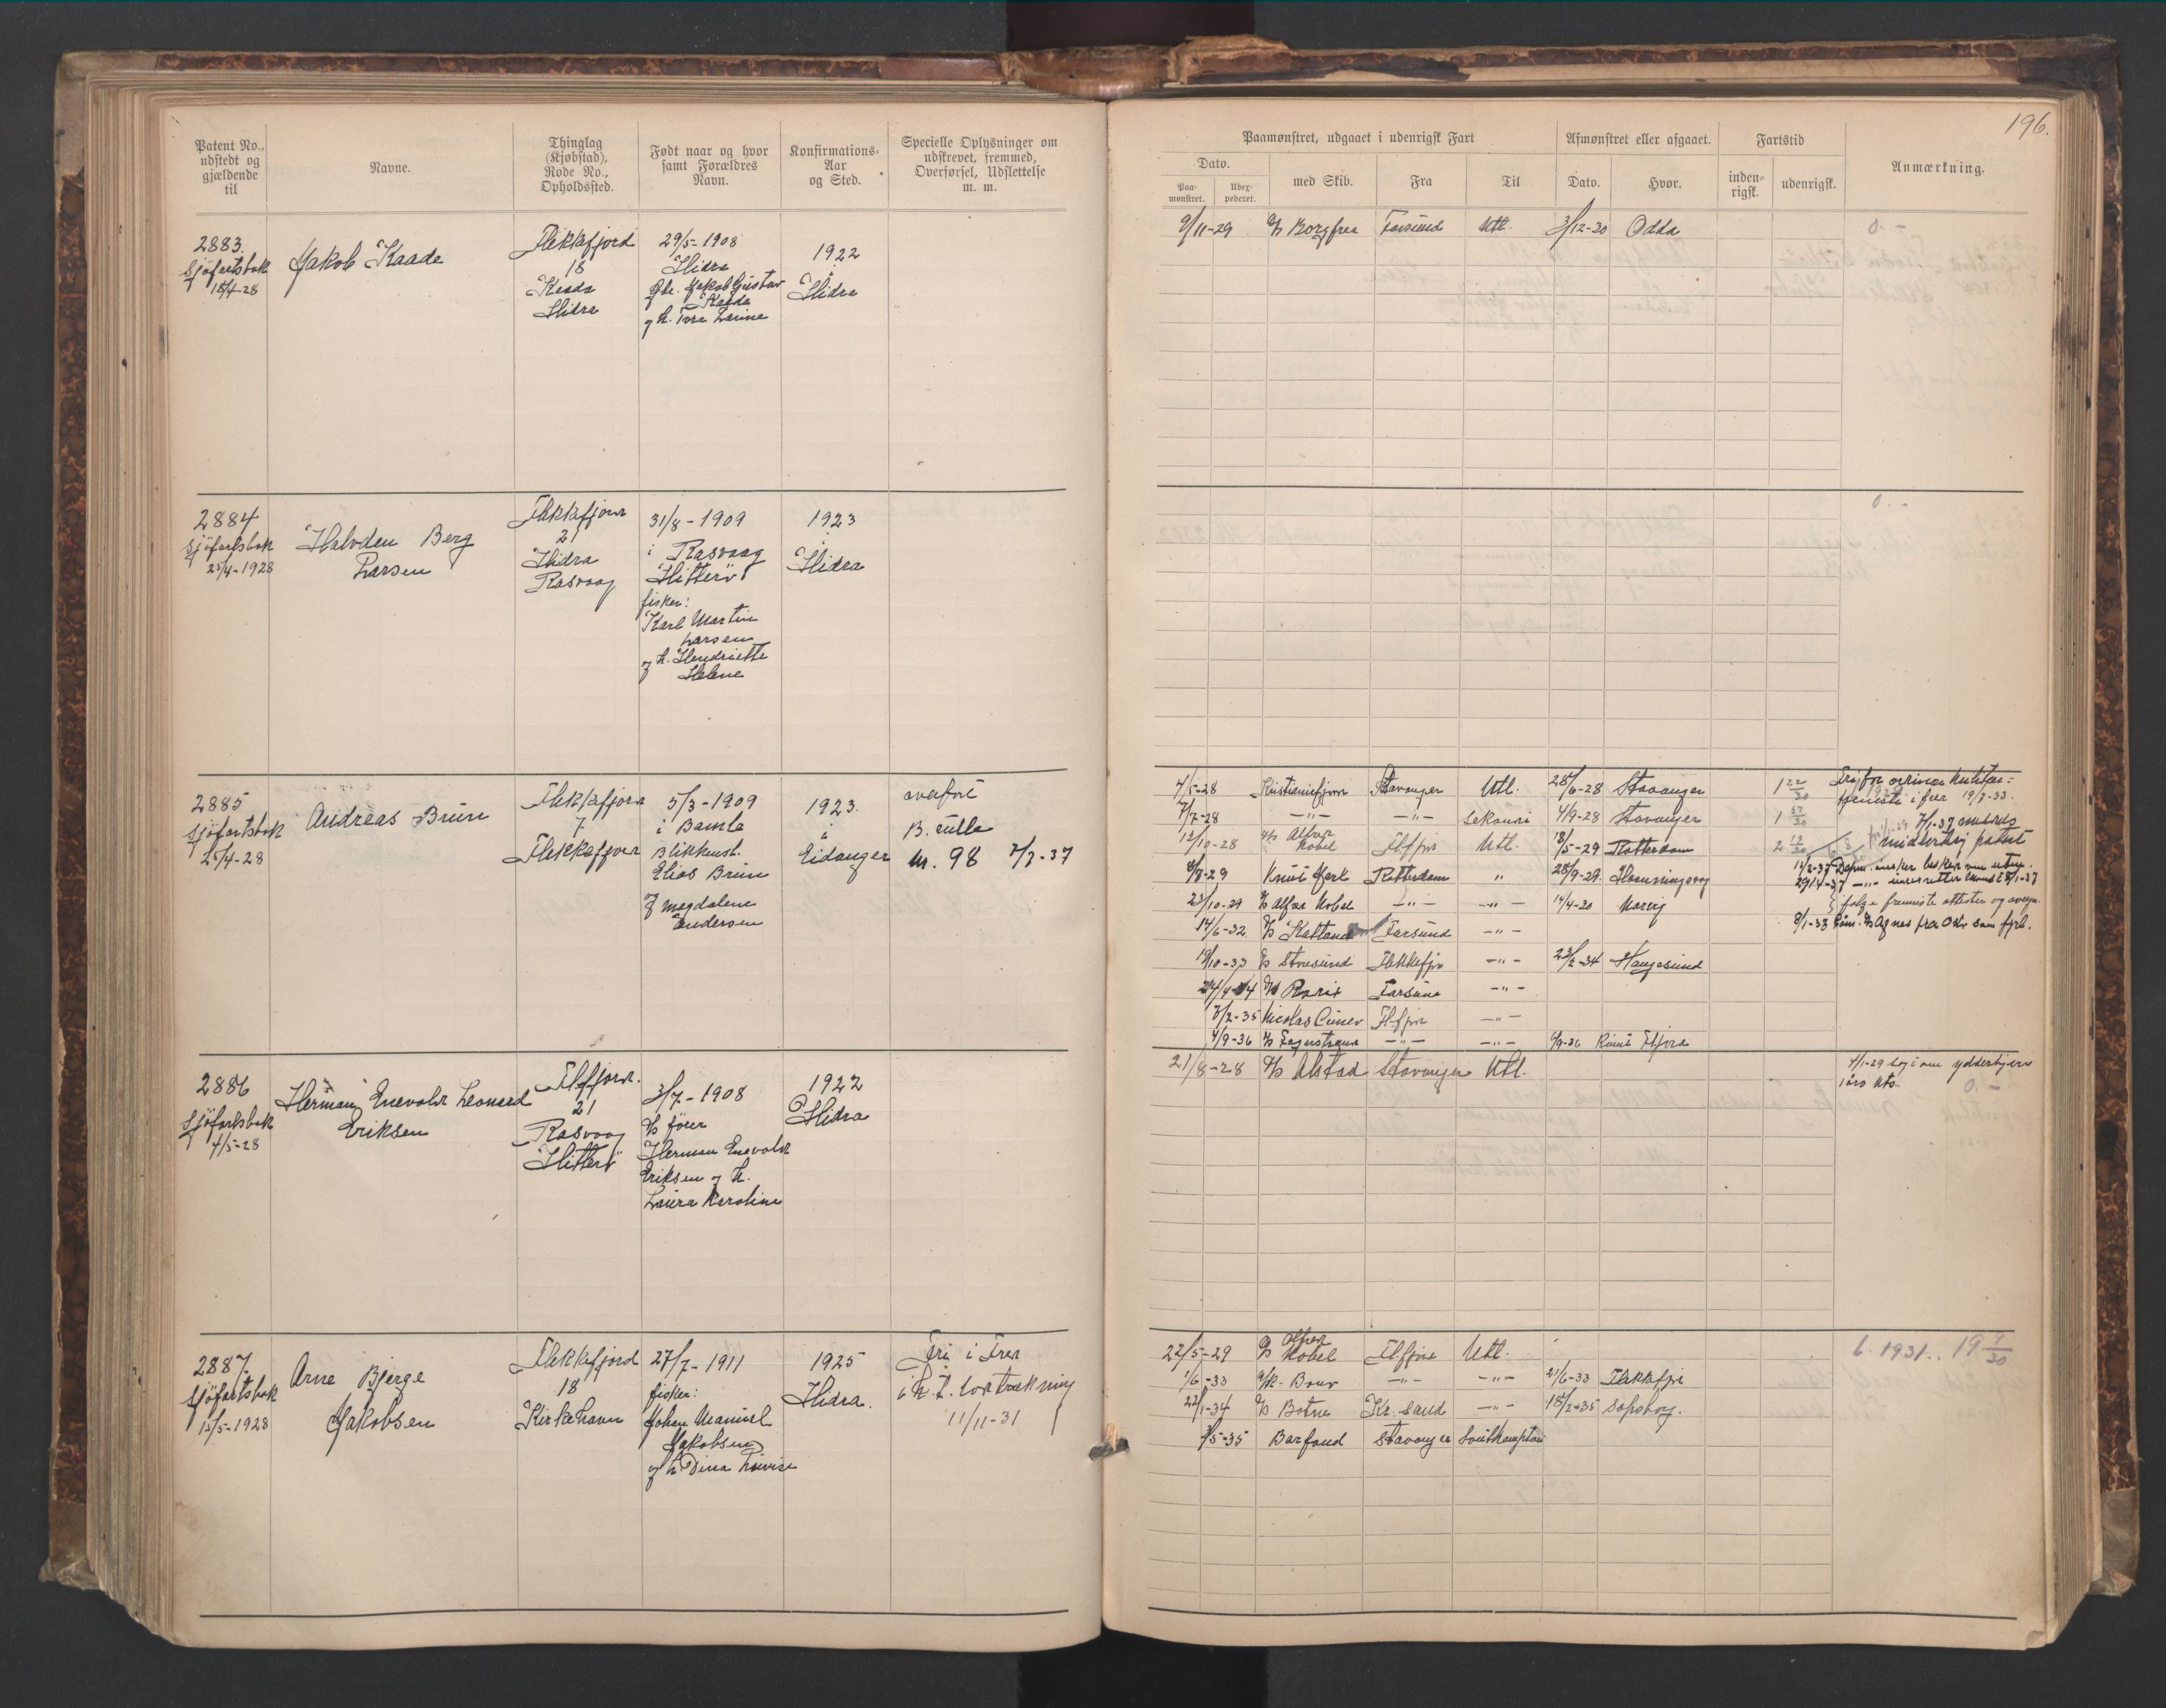 196.
Patent No., udstedt og gjældende til
Navne.
Thinglag (Kjøbstad), Rode No., Opholdssted.
Født naar og hvor samt Forældres Navn.
Konfirmations-Aar og Sted.
Specielle Oplysninger om udskrevet, fremmed, Overførsel, Udslettelse m. m.
Paamønstret, udgaaet i udenrigsk Fart
Afmønstret eller afgaaet.
Fartstid
Anmærkning.
Dato.
Paa-mønstret.
Udex-pederet.
med Skib.
Fra
Til
Dato.
Hvor.
inden-rigsk.
udenrigsk.
2883.
Sjøfartsbok
18/4-28
Jakob Kaade
Flekkefjord
18
Kaada
Hidra
29/5-1908
Hidra
Jakob Gustav
Kaada
og h. Tora Larine
1922
Hidra
9/11-29 Borgfred Farsund Utl. 3/12-30 Odda
0.-
2884
Sjøfartsbok
25/4-1928
Halvdan Berg
Larsen
Flekkefjord
21
Hidra
Rasvaag
31/8-1909
i Rasvaag
Hitterö
fisker:
Karl Martin
Larsen
og h. Hendriette
Helene
1923
i
Hidra
0.-
2885
Sjøfartsbok
25/4-28
Andreas Brun
Flekkefjord
7
Flekkefjord
5/3-1909
i Bamle
Blikkensl.
Elias Brun
og Magdalene
Andersen
1923.
i
Eidanger
overført
B. rulle
nr. 98 2/7-37
4/5-28 Kristianiafjord Stavanger Utl. 28/6-28 Stavanger 1 22/30
7/7-28 -"- -"- 4/9-28 Stavanger 1 27/30
12/10-28 Alfred Nobel Fl.fjor Utl. 18/5-29 Rotterdam 2
8/8-29 Knut Jarl Rotterdam " 28/9-29. Honningsvog
23/10-29 Alfred Nobel -"- -"- 14/4-30 Narvig
14/6-32 Katland Farsund -"-
19/10-33 Storesund Flekkefjor -"- 23/2-34 Haugesund
Farsund -"-
7/2-35 Nicolas Fl.fjor -"-
4/9-36 Fagerstrand -"- -"- Fl.fjord
tjeneste i freer 19/7-33.
7/1-37
midlertidig patent
8/1-38 Agnes fra Oslo som fyrb.
2886
Sjøfartsbok
4/5-28
Herman Enevold Leonard
Eriksen
Fl.fjord.
21
Rasvaag
Hitterö
3/7-1908
fører
Herman Enevold
Eriksen og h.
Laura Karoline
1922
Hidra
21/8-28 Alstad Stavanger Utl.
4/1-29
0.-
2887
Sjøfartsbok
15/5-1928
Arne Bjerge
Jakobsen
Flekkefjord
18
Kirkehavn
27/7-1911
fisker:
Johan Manuel
Jakobsen
og h. Dina Lovise
1925
Hidra.
Fri i Fred
11/11-31
22/5-29 Alfred Nobel Fl.fjord Utl.
1/6-33 -"- -"- 21/6-33 Flekkefj.
22/1-34 Botne Kr.sand -"- 18/2-35 Sarpsborg.
3/5-35 Barfond Stavanger Southampton
6. 1931..